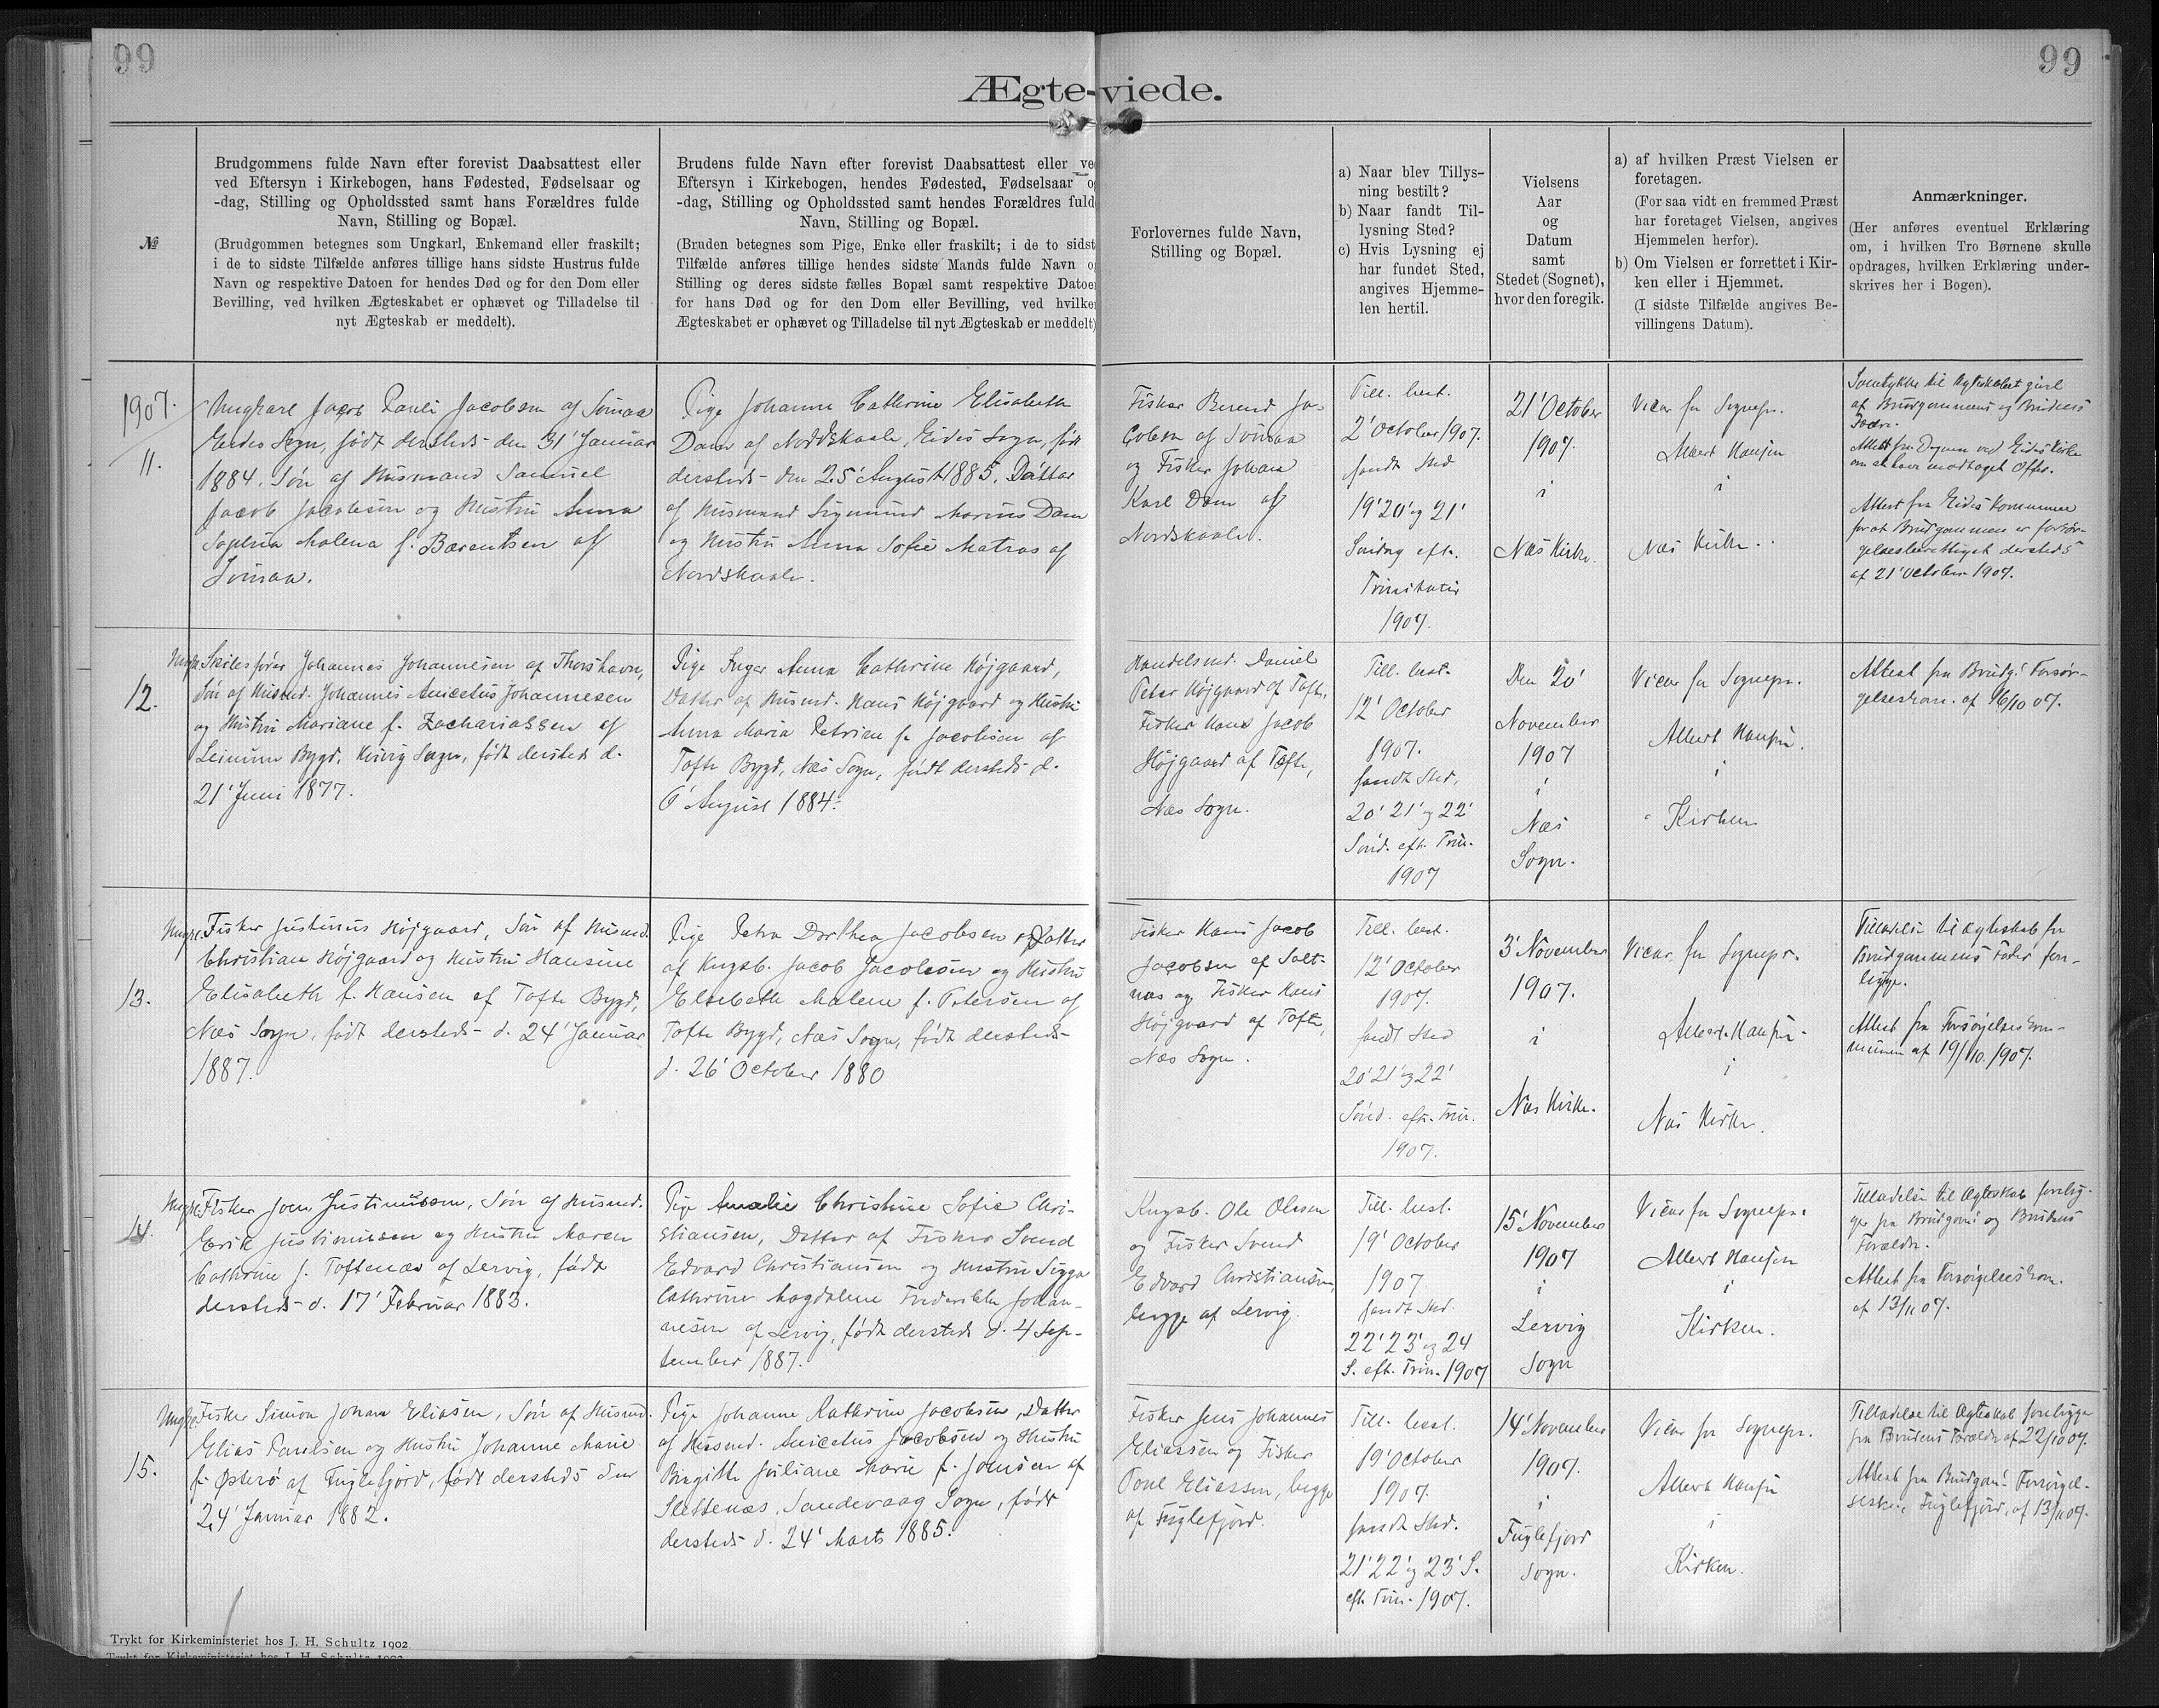 99
99
Ægte-viede.
№
Brudgommens fulde Navn efter forevist Daabsattest eller
ved Eftersyn i Kirkebogen, hans Fødested, Fødselsaar og
-dag, Stilling og Opholdssted samt hans Forældres fulde
Navn, Stilling og Bopæl.
(Brudgommen betegnes som Ungkarl, Enkemand eller fraskilt;
i de to sidste Tilfælde anføres tillige hans sidste Hustrus fulde
Navn og respektive Datoen for hendes Død og for den Dom eller
Bevilling, ved hvilken Ægteskabet er ophævet og Tilladelse til
nyt Ægteskab er meddelt).
Brudens fulde Navn efter forevist Daabsattest eller ve
Eftersyn i Kirkebogen, hendes Fødested, Fødselsaar o
-dag, Stilling og Opholdssted samt hendes Forældres fuld
Navn, Stilling og Bopæl.
(Bruden betegnes som Pige, Enke eller fraskilt; i de to sidst
Tilfælde anføres tillige hendes sidste Mands fulde Navn o
Stilling og deres sidste fælles Bopæl samt respektive Datoe
for hans Død og for den Dom eller Bevilling, ved hvilke
Ægteskabet er ophævet og Tilladelse til nyt Ægteskab er meddelt)
Forlovernes fulde Navn,
Stilling og Bopæl.
a) Naar blev Tillys-
ning bestilt?
b) Naar fandt Til-
lysning Sted?
c) Hvis Lysning ej
har fundet Sted,
angives Hjemme-
len hertil.
Vielsens
Aar
og
Datum
samt
Stedet (Sognet),
hvor den foregik.
a) af hvilken Præst Vielsen er
foretagen.
(For saa vidt en fremmed Præst
har foretaget Vielsen, angives
Hjemmelen herfor).
b) Om Vielsen er forrettet i Kir-
ken eller i Hjemmet.
(I sidste Tilfælde angives Be-
villingens Datum).
Anmærkninger.
(Her anføres eventuel Erklæring
om, i hvilken Tro Børnene skulle
opdrages, hvilken Erklæring under-
skrives her i Bogen).
1907.
11.
Ungkarl Jacob Pauli Jacobsen af
Eides Sogn, født dersteds den 31' Januar
1884. Søn af Husmand Samuel
Jacob Jacobsen og Hustru Anna
Sophia Malena f. Barentsen af
Pige Johanne Cathrine Elisabeth
Dam af Nordskaale, Eides Sogn, født
dersteds den 25' August 1885. Datter
af Husmand Sigmund Marius Dam
og Hustru Anna Sofie Matras af
Nordskaale.
Fisker Berend Ja-
cobsen af
og Fisker Johan
Karl Dam af
Nordskaale.
Till. best.
2' October 1907.
fandt Sted
19' 20' og 21'
Søndag eft.
Trinitatis
1907.
21' October
1907.
i
Næs Kirke.
Vicar for Sognepr.
Albert Hansen
i
Næs Kirke.
Samtykke til Ægteskabet givet
af Brudgommens og Brudens
Fædre.
Attest fra Degnen ved Eides Kirke
om at have modtaget Offer.
Attest fra Eides Kommune
for at Brudgommen er forsør-
gelsesberettiget dersteds
af 21' October 1907.
12.
Ungk. Johannes Johannesen af Thorshavn,
Søn af Husmd. Johannes Anicetus Johannesen
og Hustru Mariane f. Zachariassen af
Leinum Bygd, Kvivig Sogn, født dersteds d.
21' Juni 1877.
Pige Inger Anna Cathrine Højgaard,
Datter af Husmd. Hans Højgaard og Hustru
Anna Maria Petrine f. Jacobsen af
Tofte Bygd, Næs Sogn, født dersteds d.
6' August 1884.
Handelsmd. Daniel
Peter Højgaard af Tofte,
Fisker Hans Jacob
Højgaard af Tofte,
Næs Sogn.
Till. best.
12' October
1907.
fandt Sted,
20' 21' og 22'
Sønd. eft. Trin.
1907
Den 20'
November
1907
i
Næs
Sogn.
Vicar for Sognepr.
Albert Hansen.
i
Kirken
Attest fra Brudg.' Forsør-
gelseskom. af 16/10 07.
13.
Ungk. Fisker Justinus Højgaard, Søn af Husmd.
Christian Højgaard og Hustru Hansine
Elisabeth f. Hansen af Tofte Bygd,
Næs Sogn, født dersteds d. 24' Januar
1887.
Pige Petra Dorthea Jacobsen, Datter
af Kngsb. Jacob Jacobsen og Hustru
Elsebeth Malene f. Petersen af
Tofte Bygd, Næs Sogn, født dersteds
d. 26' October 1880
Fisker Hans Jacob
Jacobsen af Salt-
næs og Fisker Hans
Højgaard af Tofte,
Næs Sogn.
Till. best.
12' October
1907.
fandt Sted
20' 21' og 22'
Sønd. eft. Trin.
1907.
3' November
1907.
i
Næs Kirke.
Vicar for Sognepr.
Albert Hansen
i
Næs Kirke.
Tilladelse til Ægteskab fra
Brudgommens Fader fore-
ligger.
Attest fra Forsørgelseskom-
munen af 19/10. 1907.
14.
Ungk. Fisker Joen Justinussen, Søn af Husmd.
Erik Justinussen og Hustru Maren
Cathrine f. Toftenæs af Lervig, født
dersteds d. 17' Februar 1883.
Pige Amalie Christine Sofie Chri-
stiansen, Datter af Fisker Svend
Edvard Christiansen og Hustru Sigga
Cathrine Magdalene Frederikke Johan-
nesen af Lervig, født dersteds d. 4 Sep-
tember 1887.
Kngsb. Ole Olsson
og Fisker Svend
Edvard Christiansen,
begge af Lervig.
Till. best.
19' October
1907.
fandt Sted.
22' 23' og 24
S. eft. Trin. 1907
15' November
1907
i
Lervig
Sogn
Vicar for Sognepr.
Albert Hansen
i
Kirken.
Tilladelse til Ægteskab forelig-
ger fra Brudgom.' og Brudens
Forældre.
Attest fra Forsørgelseskom.
af 13/11 07.
15.
Ungk. Fisker Simon Johan Eliasen, Søn af Husmd.
Elias Paulsen og Hustru Johanne Marie
f. Østerø af Fuglefjord, født dersteds den
24' Januar 1882.
Pige Johanne Kathrine Jacobsen, Datter
af Husmd. Anicetus Jacobsen og Hustru
Birgitte Juliane Marie f. Joensen af
Slettenæs, Sandevaag Sogn, født
dersteds d. 24' Marts 1885.
Fisker Jens Johannes
Eliassen og Fisker
Poul Eliassen, begge
af Fuglefjord.
Till. best.
19' October
1907.
fandt Sted.
21' 22' og 23' S.
eft. Trin. 1907.
14' November
1907.
i
Fuglefjord
Sogn.
Vicar for Sognepr.
Albert Hansen
i
Kirken.
Tilladelse til Ægteskab foreligger
fra Brudens Forældre af 22/10 07.
Attest fra Brudgom.' Forsørgel-
sesk., Fuglefjord, af 13/11 07.
Trykt for Kirkeministeriet hos J. H. Schultz 1902.
Trykt for Kirkeministeriet hos J. H. Schultz 1902.